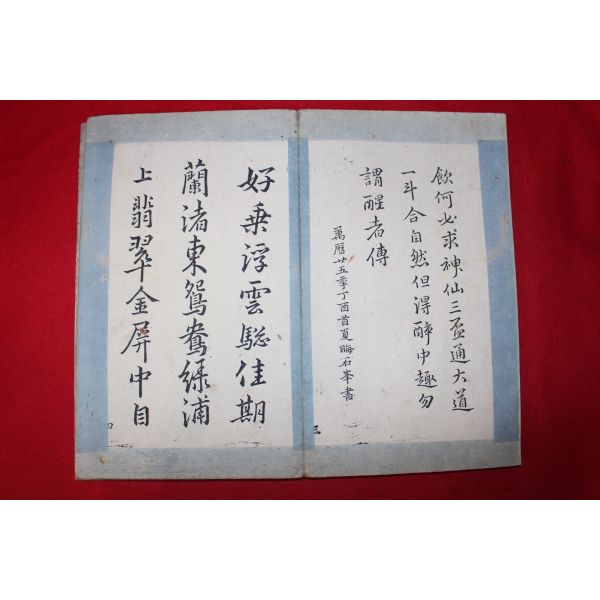 飮何必求神仙三盃通大道
一斗合自然但得醉中趣勿
謂醒者傳
萬曆廿五季丁酉首夏晦石峯書
三
好乗浮雲驄佳期
蘭渚東鴛鴦綠浦
上翡翠金屏中自
四